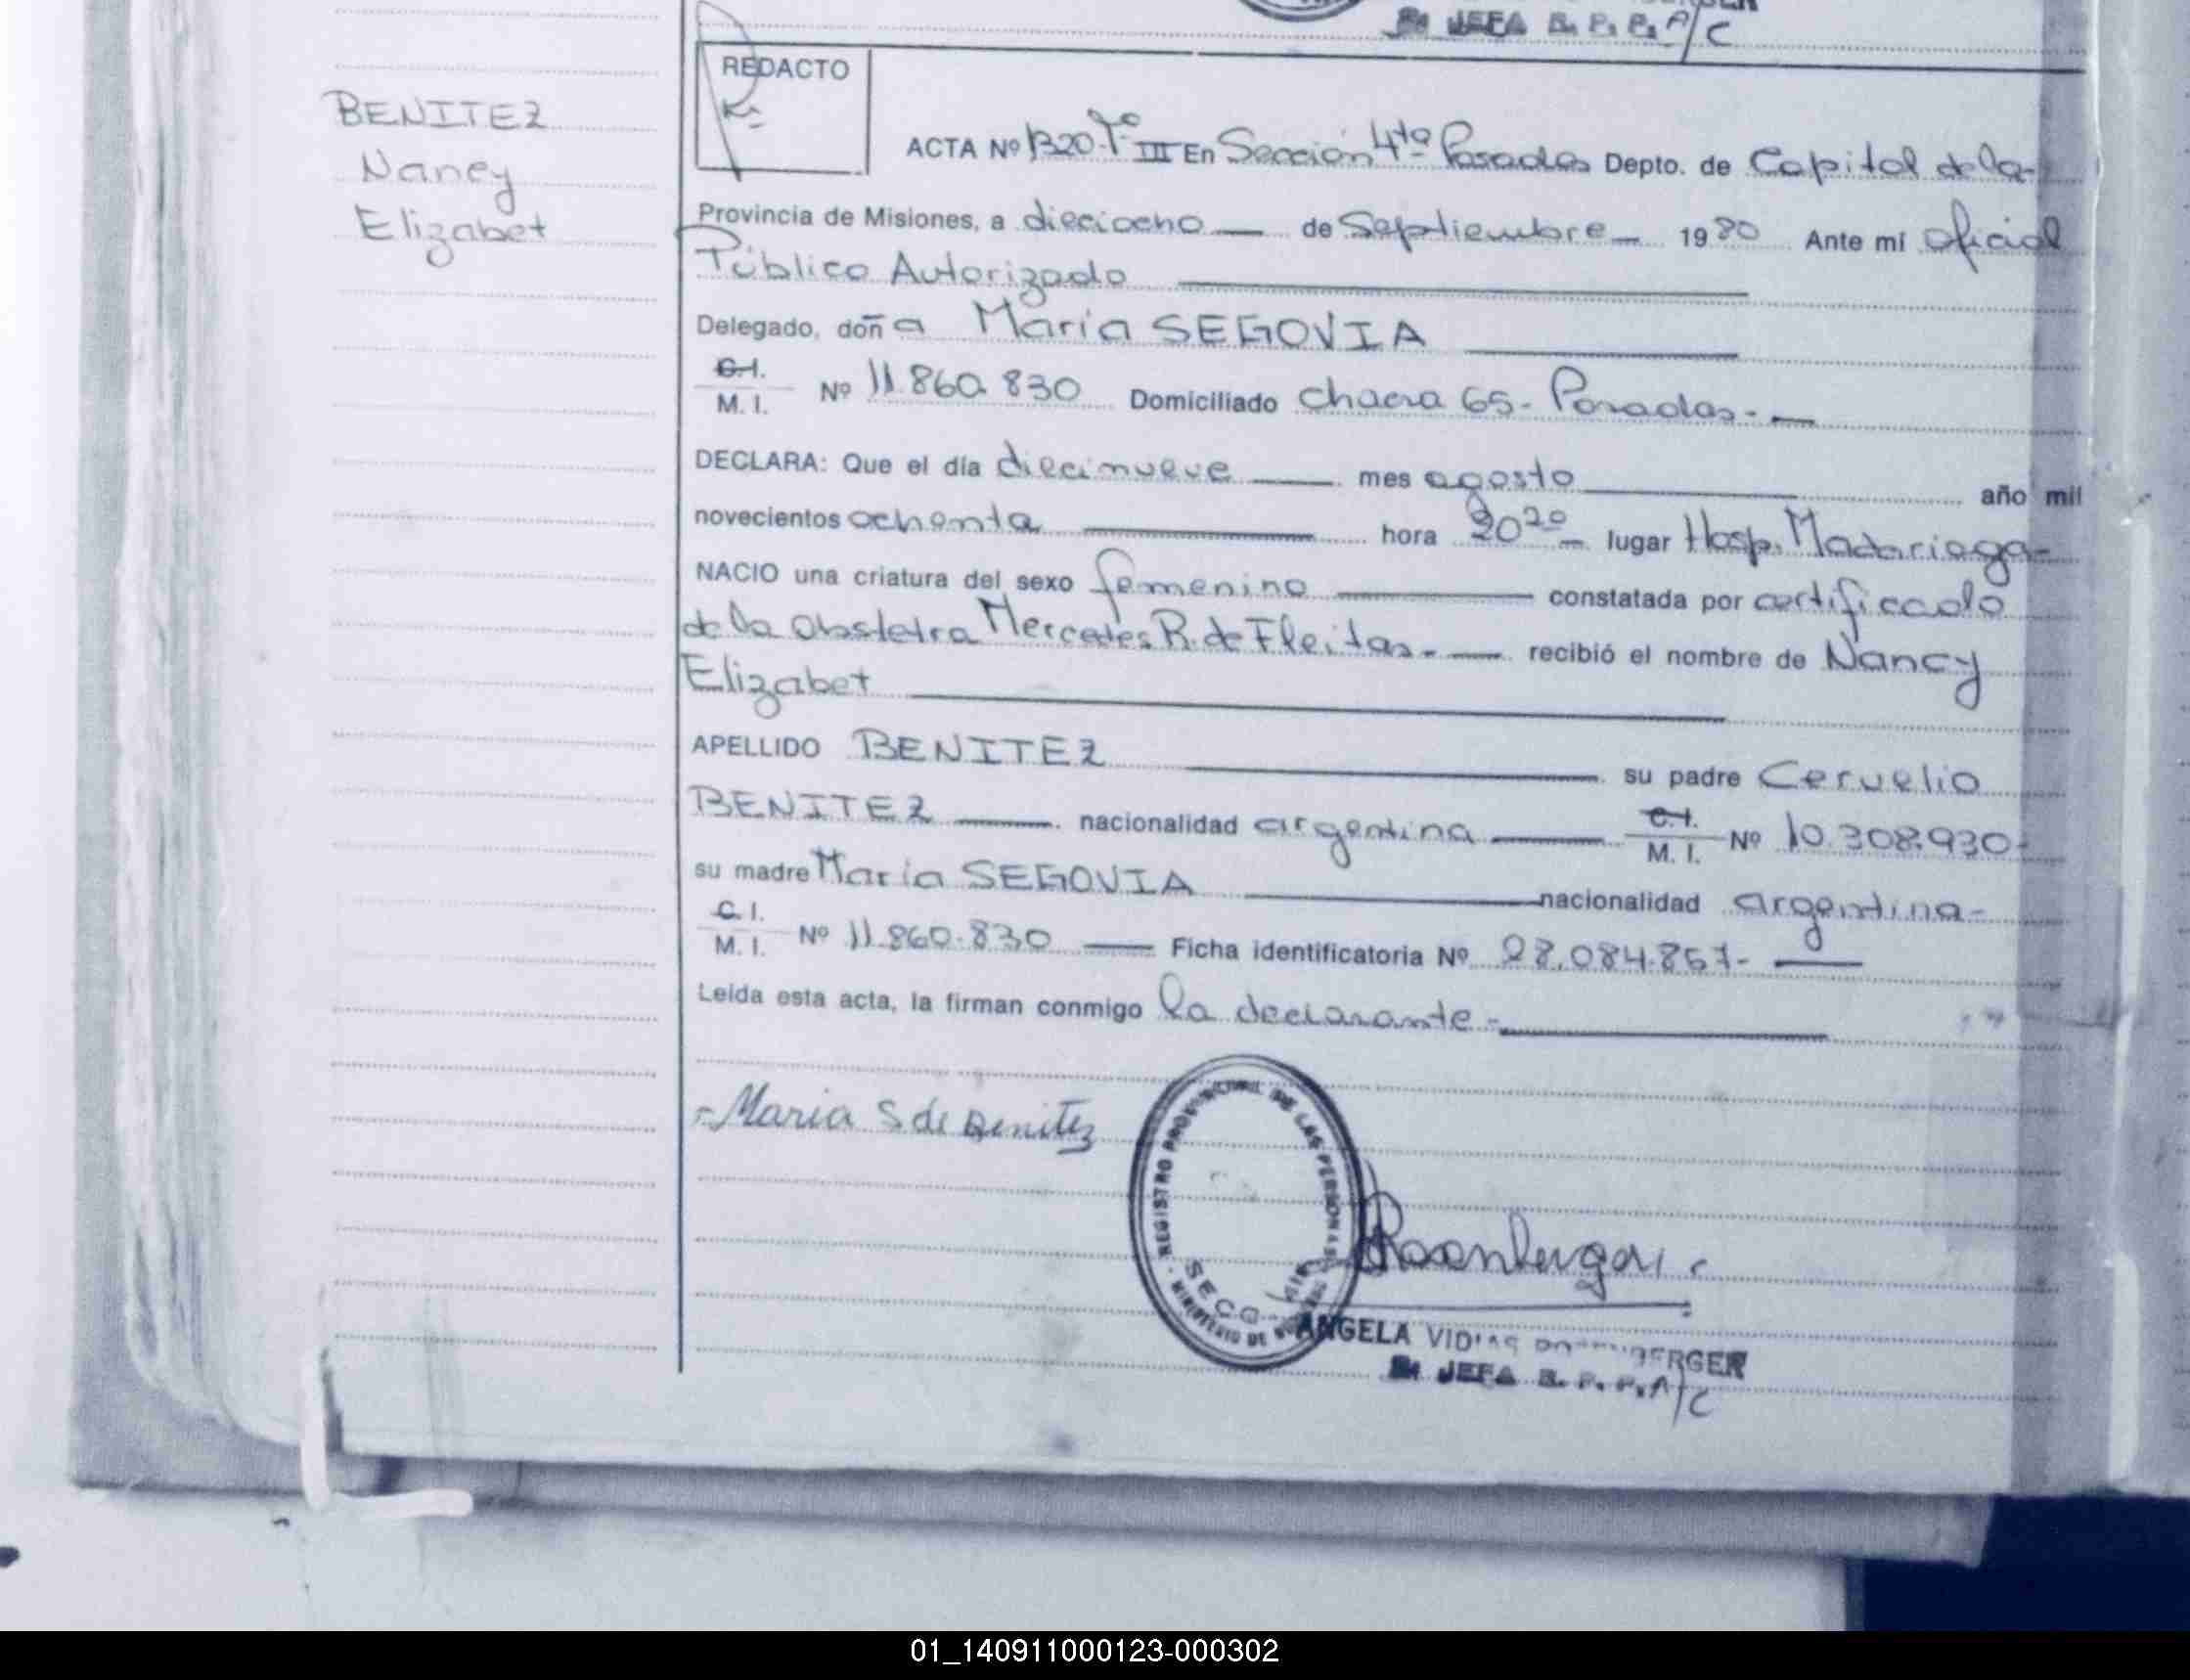 JEFA B. P. P. A/C
REDACTO
BENITEZ
Nancy
Elizabet
ACTA Nº 1320 Tº III En Sección 4ta Posadas Depto. de Capital de la
Provincia de Misiones, a dieciocho — de Septiembre — 1980 Ante mí Oficial
Público Autorizado
Delegado, doña María SEGOVIA
C.I.
M. I. Nº 11.860.830 Domiciliado chacra 65 - Posadas - —
DECLARA: Que el día diecinueve — mes agosto — año mil
novecientos ochenta — hora 20 20 lugar Hosp. Madariaga -
NACIO una criatura del sexo femenino — constatada por certificado
de la Obstetra Mercedes R. de Fleitas. — recibió el nombre de Nancy
Elizabet
APELLIDO BENITEZ — su padre Cervelio
BENITEZ — nacionalidad argentina — C.I.
M. I. Nº 10.308.930 -
su madre María SEGOVIA — nacionalidad argentina -
C.I.
M. I. Nº 11.860.830 — Ficha identificatoria Nº 28.084.857 - —
Leída esta acta, la firman conmigo la declarante - —
Maria S de Benitez
REGISTRO PROVINCIAL DE LAS PERSONAS
MINISTERIO DE
ANGELA
JEFA B. P. P. A/C
01_140911000123-000302